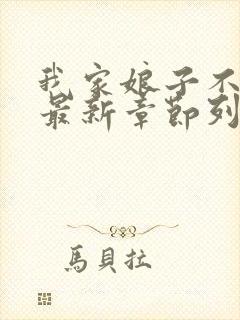 我家娘子不
最新章節列
馬貝拉